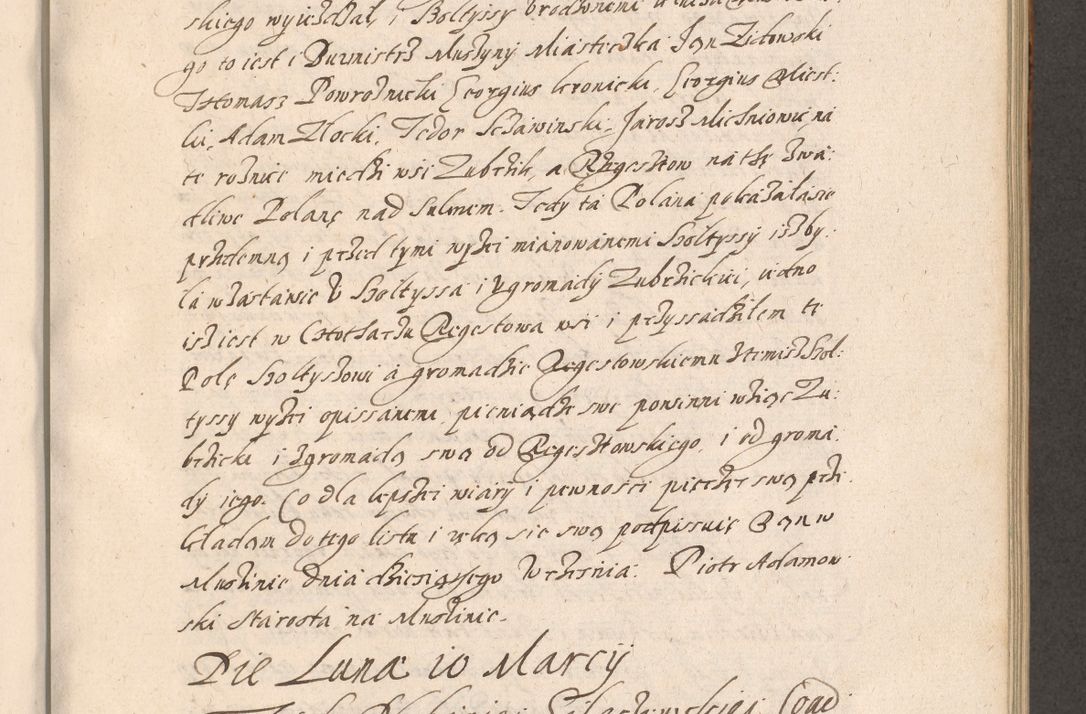 skiego wyieżdżał, i Szoltyssy urodzonemi
go to iest i Burmistrz Muszyny Miasteczka Jan Zidowski
Thomasz Powroźnicki Georgius Kronicki, Georgius Miest:
ki, Adam Zlocki, Fedor Sczawinski, Jarosz Miśniowic, na
te roznice miedzi wsi Zubrzik, a Regestow na thę zwa:
dliwe Polanę nad Sulinem. Tedy ta Polana pokazałasie
przedemną i przed tymi wyżei mianowanemi Szoltyssy isz by:
ła w zastawie v Szoltyssa i v gromady Zubrzickiei, vidno
isz iest w Chotharzu Regestowa wsi i przyssadziłem te
Polę Szoltyszowi á gromadzie Regestowskiemu z temisz Szol:
tyssy wyżei opissanemi, pieniądze swe powinni wziąc Zu:
brzicki i z gromadą swą od Regesztowskiego, i od groma:
dy iego. Co dla lepszei wiary i pewności pieczęc swą przi:
kładam do tego listu i ręką się swą podpissuię Dan w
Muszinie dnia dziesiąssego Wrzesnia. Piotr Adamow
ski Starosta na Muszinie.
Die Lunæ 10 Marcij